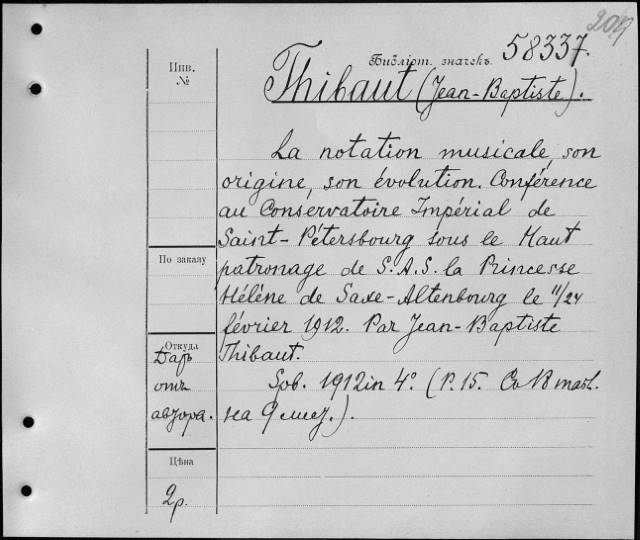 2017
Библіот. значекъ 58337.
Инв.
№
Thibaut (Jean-Baptiste).
La notation musicale, son
origine, son évolution. Conférence
au Conservatoire Impérial de
Saint-Pétersbourg sous le Haut
По заказу
patronage de S.A.S. la Princesse
Hélène de Saxe-Altenbourg le 11/24
février 1912. Par Jean-Baptiste
Откуда
Thibaut.
Даръ
отъ
автора.
Spb. 1912 in 4°. (P. 15. Со 18 табл.
на 9 лист.).
Цѣна
2р.